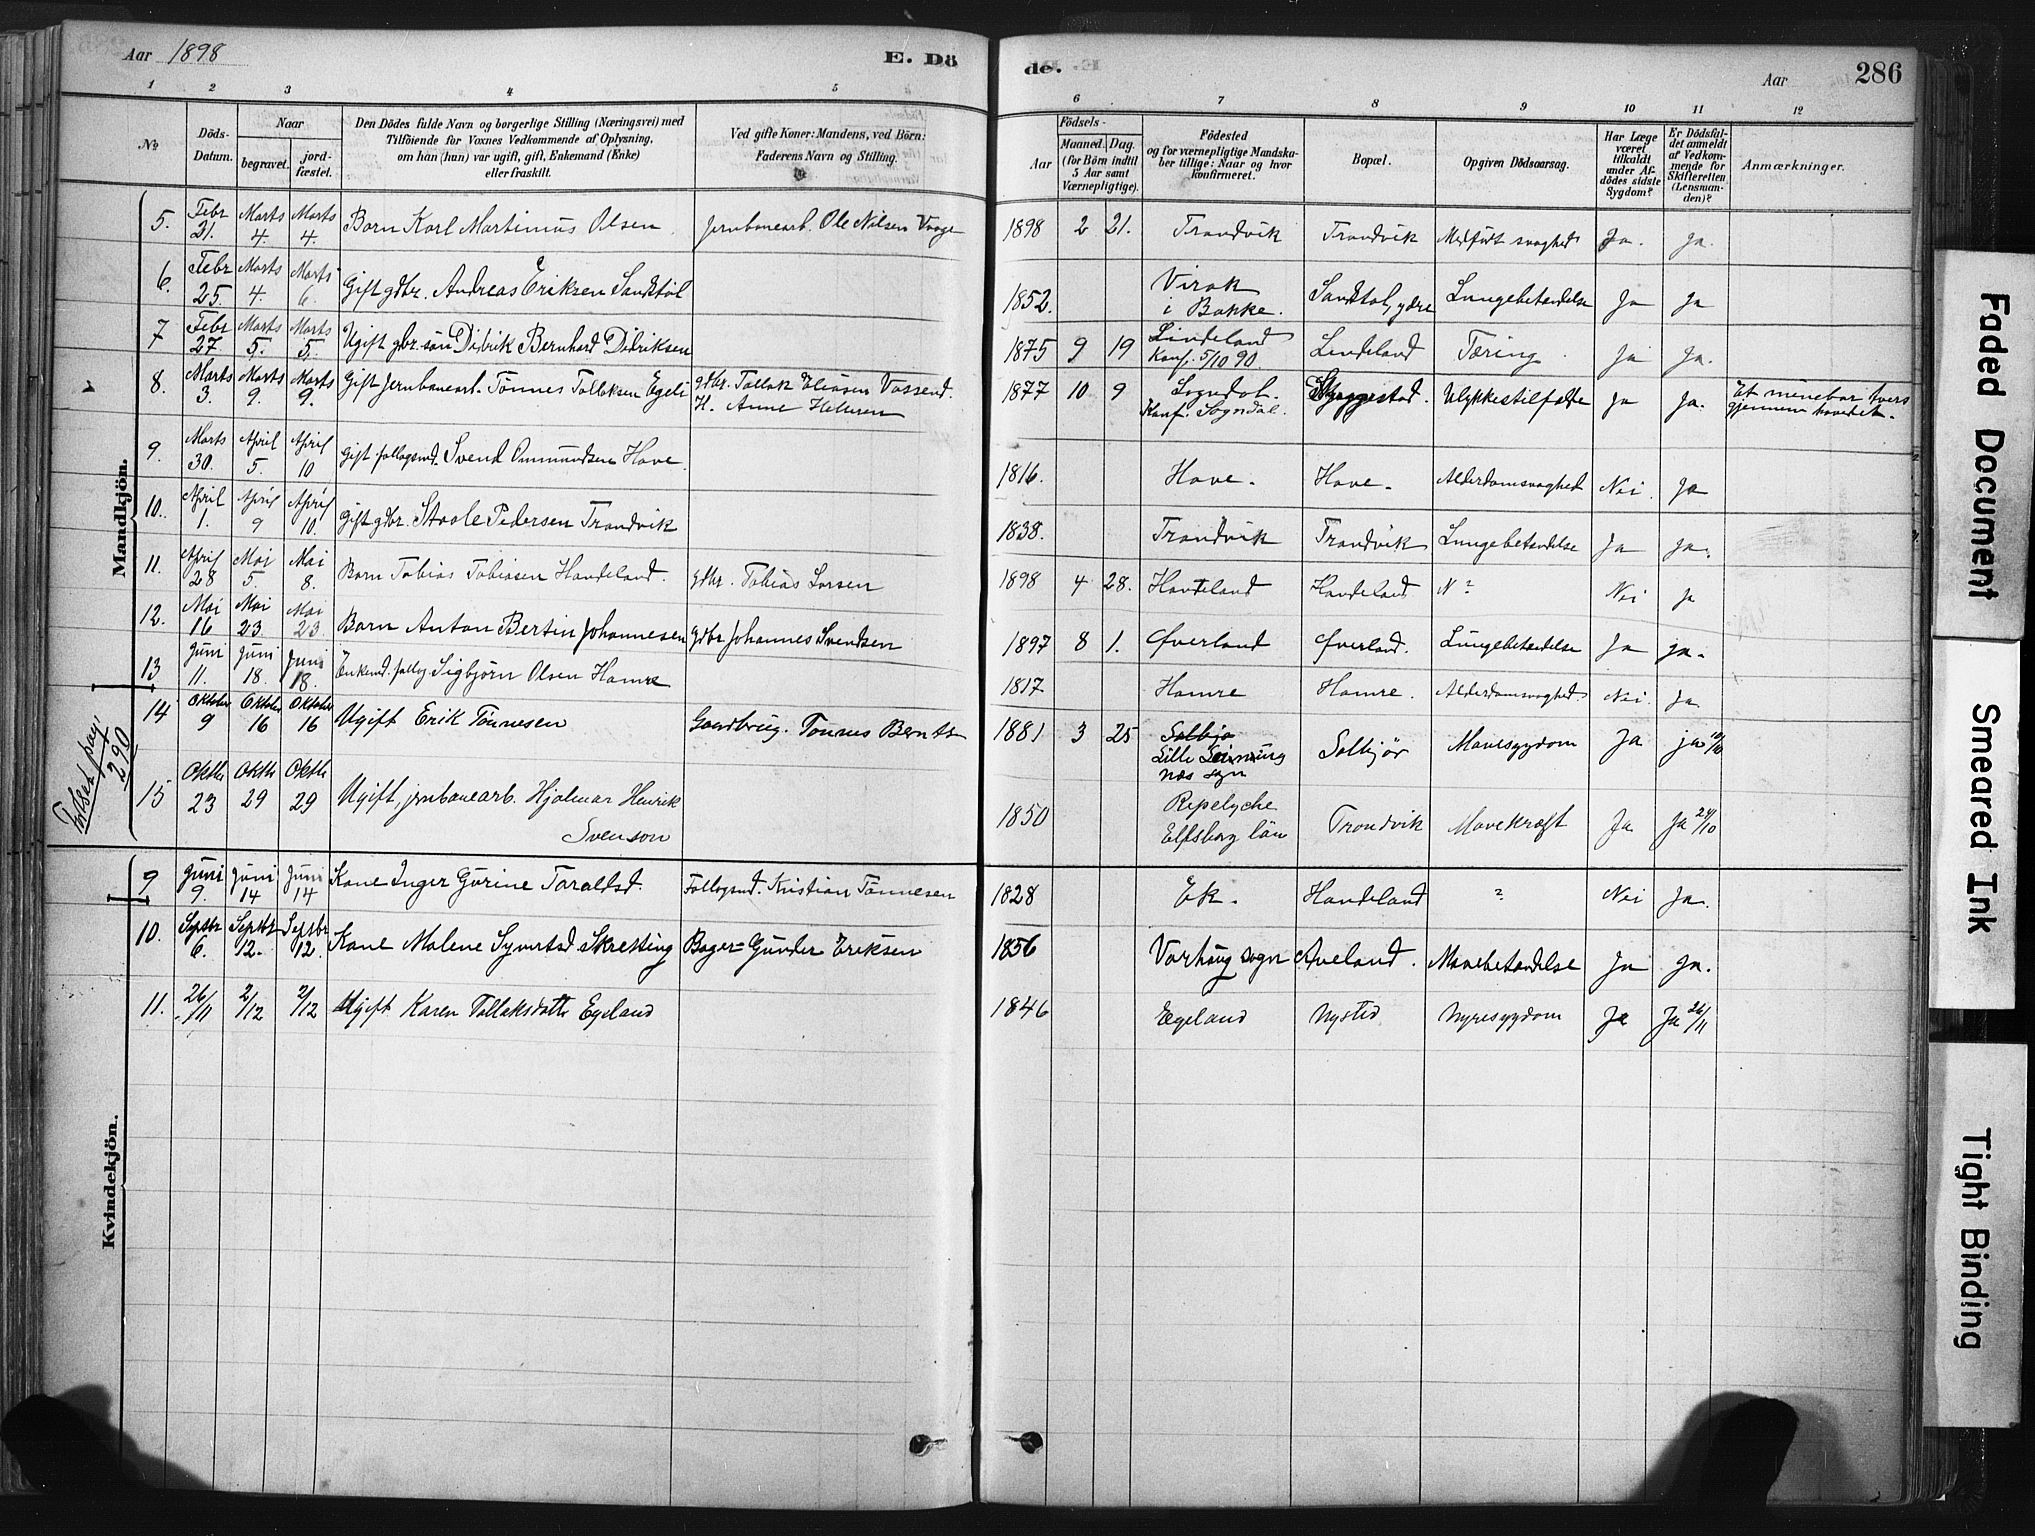 Aar 1898
E. Dö
de.
Aar
286
1 2 3 4 5 6 7 8 9 10 11 12
№
Döds-
Datum.
Naar
begravet.
jord-
fæstet.
Den Dödes fulde Navn og borgerlige Stilling (Næringsvei) med
Tilföiende for Voxnes Vedkommende af Oplysning,
om han (hun) var ugift, gift, Enkemand (Enke)
eller fraskilt.
Ved gifte Koner: Mandens, ved Börn:
Faderens Navn og Stilling.
Födsels-
Aar
Maaned. Dag.
(for Börn indtil
5 Aar samt
Værnepligtige).
Födested
og for værnepligtige Mandska-
ber tillige: Naar og hvor
konfirmeret.
Bopæl.
Opgiven Dödsaarsag.
Har Læge
været
tilkaldt
under Af-
dödes sidste
Sygdom?
Er Dödsfal-
det anmeldt
af Vedkom-
mende for
Skifteretten
(Lensman-
den)?
Anmærkninger.
Mandkjön.
5. Febr 21. Marts 4. Marts 4. Barn Karl Martinius Olsen. Jernbanearb. Ole Nilsen Vaage 1898 2 21. Trandvik Trandvik Medfödt svaghed Ja. ja.
6. Febr 25. Marts 4. Marts 6. Gift gdbr. Andreas Eriksen Sandtöl 1852. Virak
i Bakke. Sandtol, ydre Lungebetændelse Ja Ja
7 Febr 27. Marts 5. Marts 5. Ugift gbr. sön Didrik Bernhard Didriksen 1875 9 19 Lindeland
Konf. 5/10 90. Lindeland Tæring. Ja Ja.
8. Marts 3. Marts 9. Marts 9. Gift Jernbanearb. Tønnes Tollaksen Egeli gdbr. Tollak Eliasen Vassend.
H. Anne Helene 1877 10 9 Sogndal.
Konf. Sogndal. Skyggestad. Ulykkestilfælde Ja Ja. Et minebor tvers
gjennem hovedet.
9. Marts 30. April 5. April 10 Gift follagsmd. Svend Ommundsen Hove. 1816. Hove. Hove. Alderdomssvaghed Nei. Ja
10. April 1. April 9 April 10. Gift gdbr. Staale Pedersen Trandvik 1838. Trandvik Trandvik Lungebetændelse Ja ja.
11. April 28 Mai 5. Mai 8. Barn Tobias Tobiasen Handeland. gdbr. Tobias Larsen 1898 4 28. Handeland Handeland N? Nei ja
12. Mai 16 Mai 23 Mai 23. Barn Anton Bertin Johannesen gdbr Johannes Svendsen 1897 8 1. Øverland Øverland. Lungebetændelse Ja ja.
13 Juni 11. Juni 18. Juni 18. Enkemd. follog Sigbjørn Olsen Hamre 1817 Hamre Hamre. Alderdomssvaghed. Nei. Ja
14 Oktober 9 Oktober 16 Oktober 16 Ugift Erik Tønnesen Gaardbrug. Tønnes Bernts 1881 3 25 Solbjø
Lille
nes sogn Solbjør Mavesygdom Ja ja 10/10
Fortsat pag.
290
15 Oktbr 23 Oktbr 29 Oktbr 29 Ugift, jernbanearb. Hjalmar Henrik
Svenson 1850 Repelyche
Elfsborg län Trandvik Mavekræft Ja Ja 24/10
Kvindekjön.
9 Juni 9. Juni 14 Juni 14 Kone Inger Gurine Taraldsd. Follogsmd. Kristian Tønnesen 1828 Ek. Handeland ? Nei Ja.
10. Septbr 6. Septbr 12. Septbr 12. Kone Malene Syvertsd Skretting Bager Gunder Eriksen 1856 Varhaug sogn Aveland. Mavebetændelse Ja ja.
11. 26/11 2/12 2/12 Ugift Karen Tollaksdatter Egeland 1846 Egeland Nysted Nyresygdom Ja Ja 26/11
Faded Document
Smeared Ink
Tight Binding